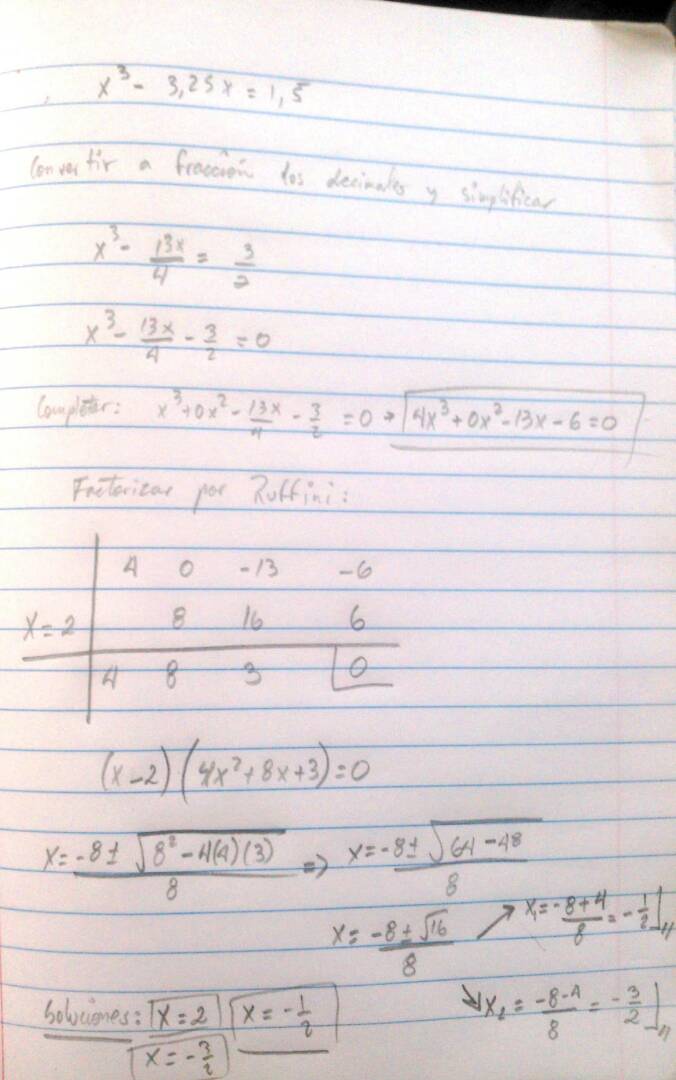 x³ - 3,25x = 1,5
Convertir a fracción los decimales y simplificar
x³ - 13x/4 = 3/2
x³ - 13x/4 - 3/2 = 0
Completar: x³ + 0x² - 13x/4 - 3/2 = 0 → 4x³ + 0x² - 13x - 6 = 0
Factorizar por Ruffini:
4 0 -13 -6
x = 2 8 16 6
4 8 3 0
(x - 2)(4x² + 8x + 3) = 0
x = -8 ± √(8² - 4(4)(3)) / 8 => x = -8 ± √(64 - 48) / 8
x = -8 ± √16 / 8 ↗ x₁ = -8 + 4 / 8 = -1/2
↘ x₂ = -8 - 4 / 8 = -3/2
Soluciones: x = 2 x = -1/2
x = -3/2